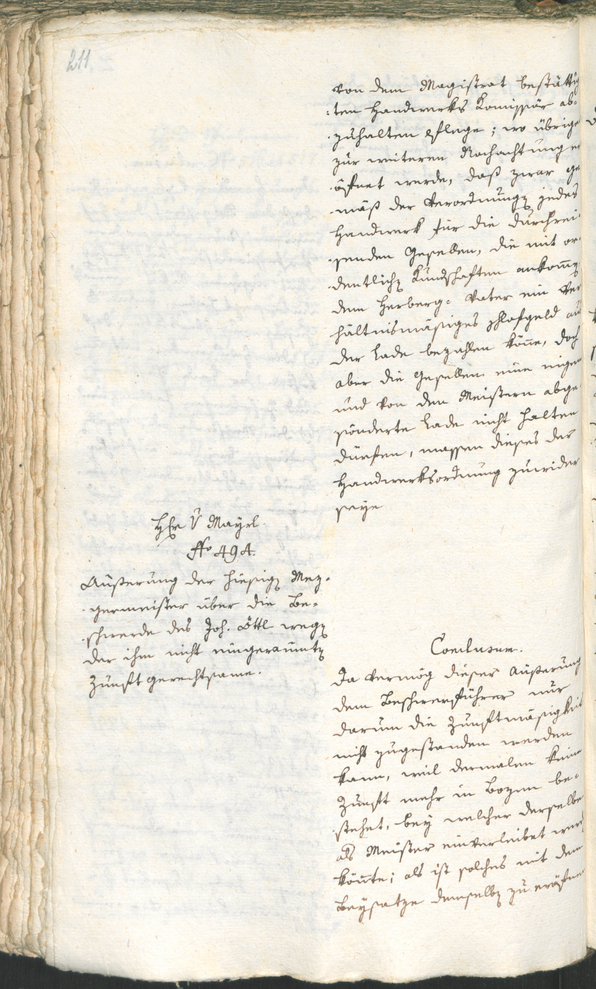 211.
von dem Magistrat bestättig
-ten Handwerks Komissär ab-
zuhalten pflege; wo übrige
zur weiteren Nachachtung
öfnet werde, daß zwar ge
mäß der Verordnung jedes
Handwerk für die durchrei
senden Gesellen, die mit or
dentlich Kundschaften ankom̅
dem Herberg-Vater ein Ver
hältnismäßiges schlafgeld au
der Lade bezahlen kön̅e, doch
aber die Gesellen eine eigen
und von den Meistern abge
sönderte Lade nicht halten
dürfen, massen dieses der
Handwerksordnung zuwider
seye
H V Mayrl
No 494.
Äußerung der hiesig Mez-
germeister über die Be-
schwerde des Joh. Öttl weg
der ihm nicht eingeraumt
Zunft gerechtsame.
Conclusum.
Da vermög dieser Äußerung
dem Beschwerdführer nur
darum die Zunftmäsigkeit
nicht zugestanden werden
kann, weil dermalen keine
Zunft mehr in Bozen be-
stehet, bey welcher derselbe
als Meister einverleibet wer
kön̅te; als ist solches mit dem
Beysatze demselb zu eröfnen